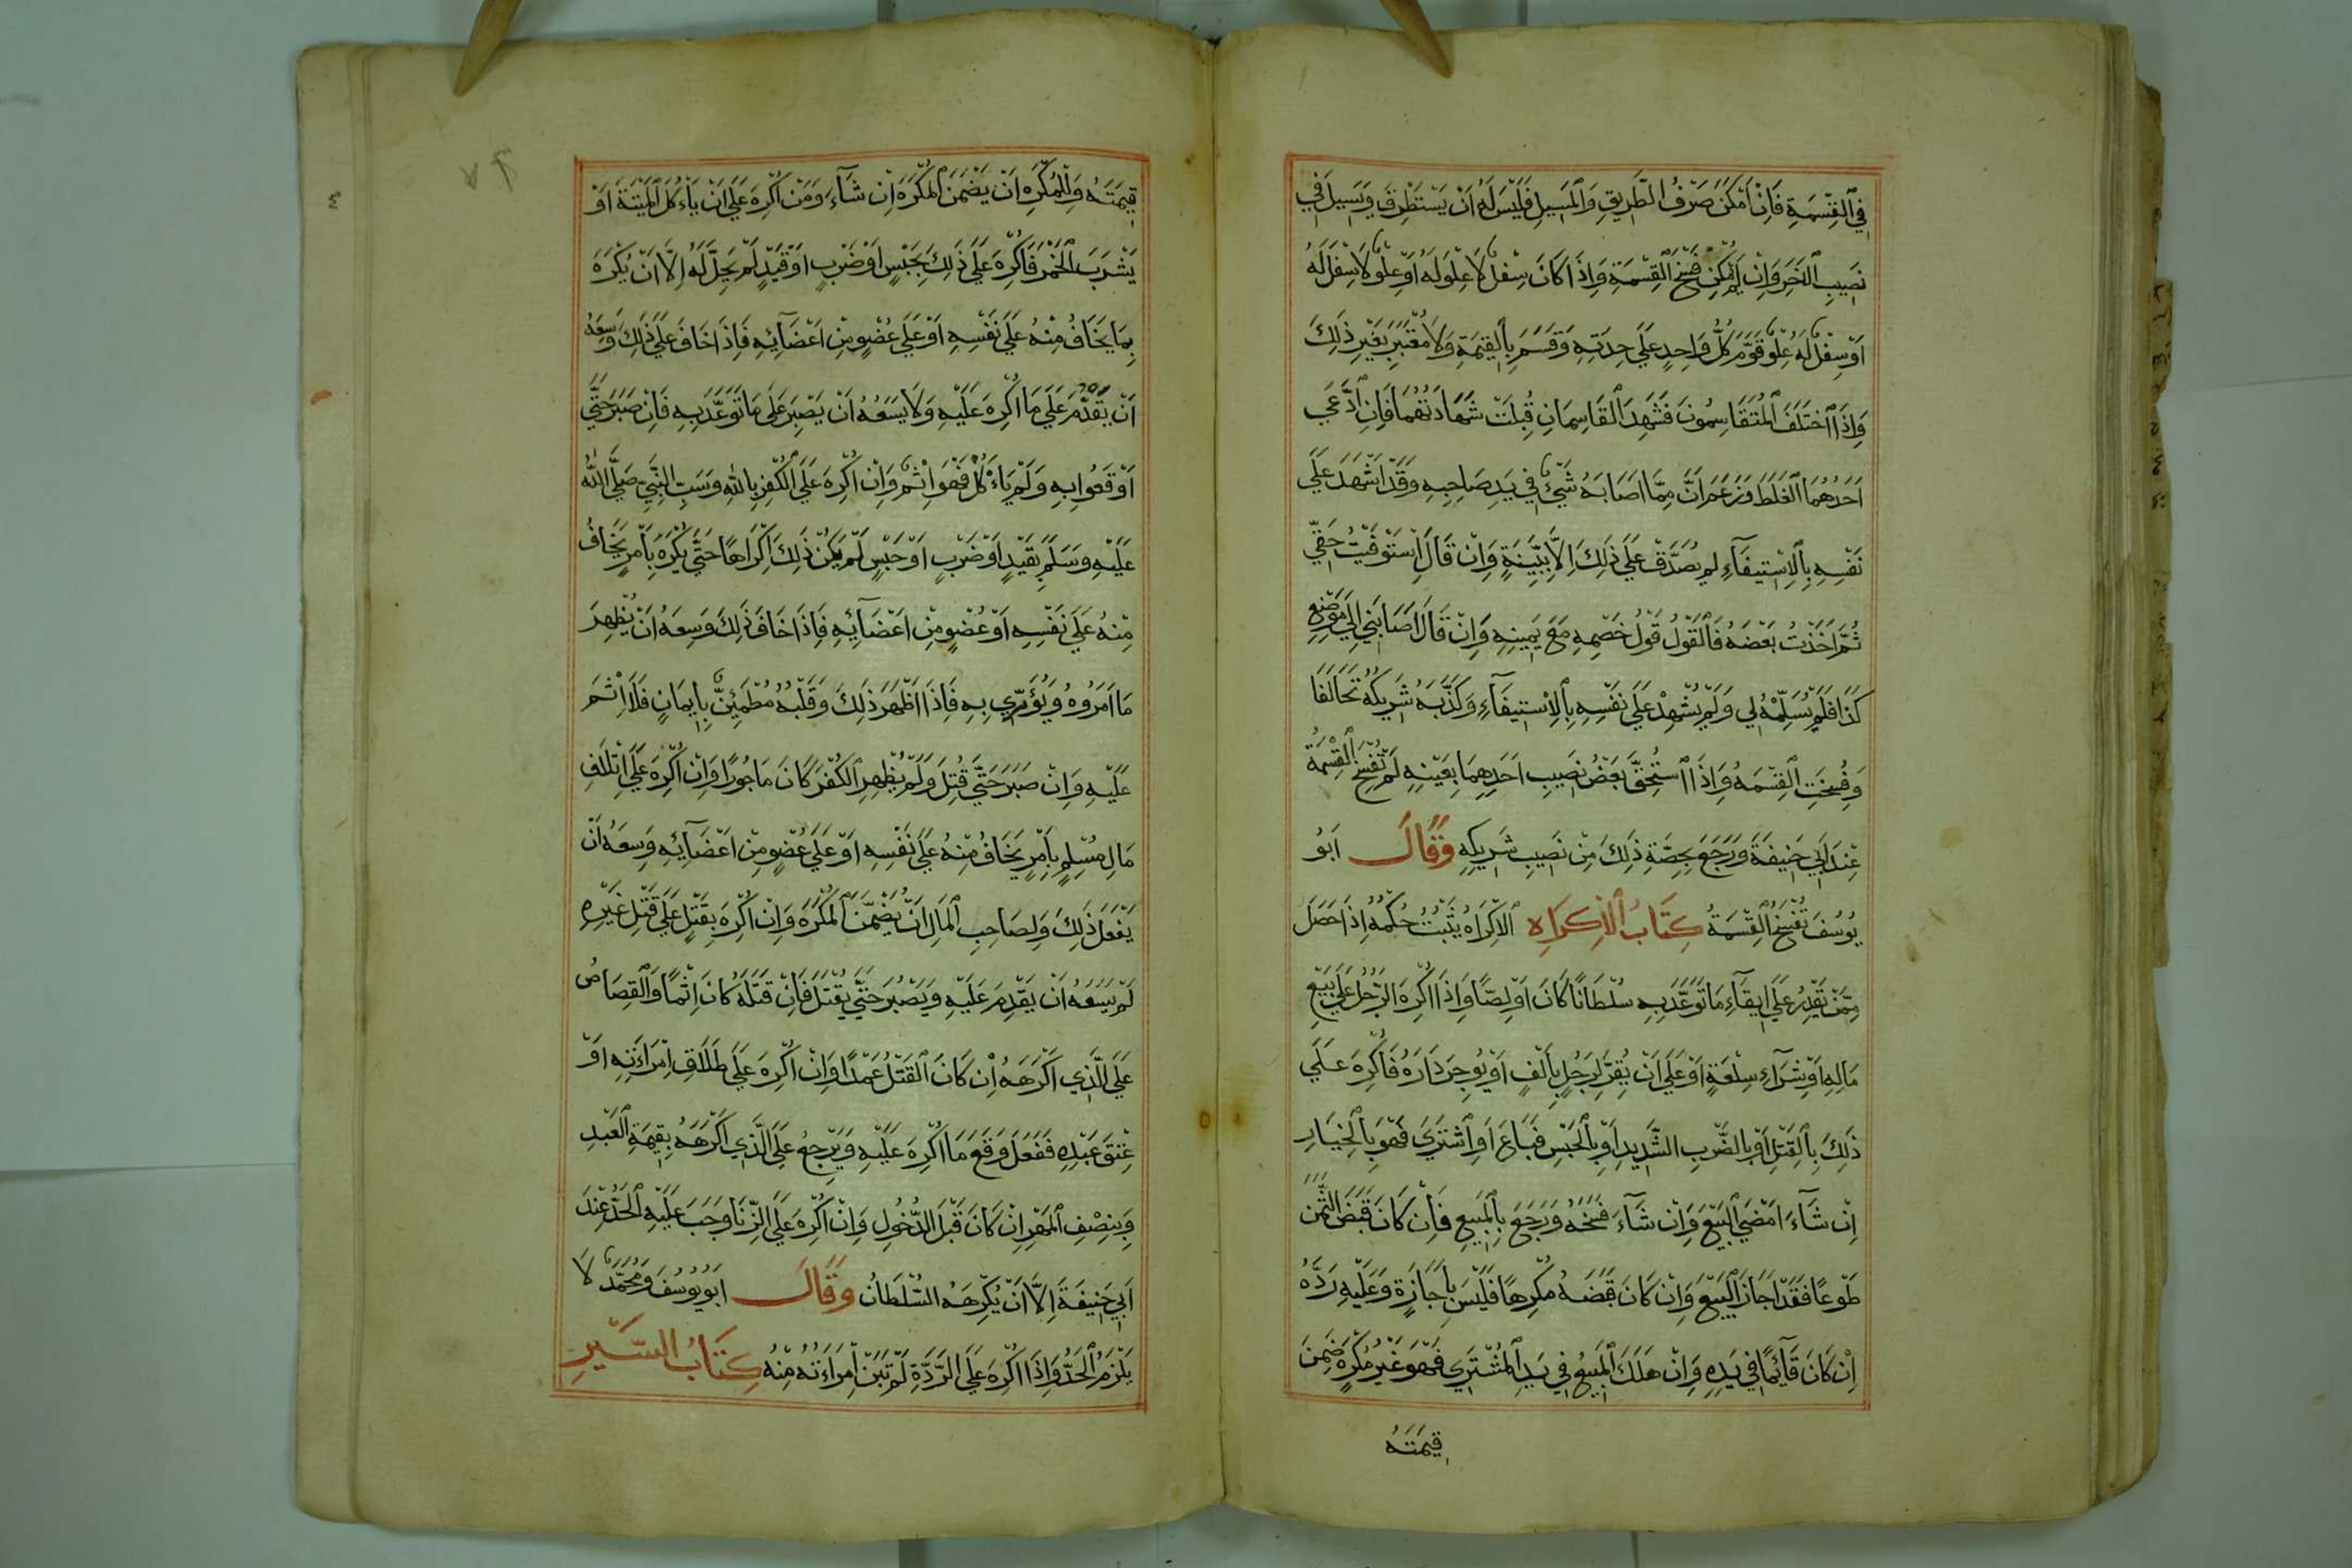 في القسمة فان امكن صرف الطريق والمسيل فليس له ان يستطرق ويسيل في
نصيب الاخر وان لم يمكن فسخ القسمة واذا كان سفل لا علو له او علو لا سفل له
او سفل له علو قوم كل واحد علي حدته وقسم بالقيمة ولا معتبر بغير ذلك
واذا اختلف المتقاسمون فشهد القاسمان قبلت شهادتهما فان ادعي
احدهما الغلط وزعم ان مما اصابه شيئ في يد صاحبه وقد اشهد علي
نفسه بالاستيفآء لم يصدق علي ذلك الا ببينة وان قال استوفيت حقي
ثم اخذت بعضه فالقول قول خصمه مع يمينه وان قال اصابني الي موضع
كذا فلم يسلمه لي ولم يشهد علي نفسه بالاستيفآء وكذبه شريكه تحالفا
وفسخت القسمة واذا استحق بعض نصيب احدهما بعينه لم تفسخ القسمة
عند ابي حنيفة ورجع بحصة ذلك من نصيب شريكه وقال ابو
يوسف تفسخ القسمة كتاب الاكراه الاكراه يثبت حكمه اذا حصل
ممن يقدر علي ايقآء ما توعد به سلطانا كان او لصا واذا اكره الرجل علي بيع
ماله او شرآء سلعة او علي ان يقر لرجل بالف او يوجر داره فاكره علي
ذلك بالقتل او بالضرب الشديد او بالحبس فباع او اشتري فهو بالخيار
ان شآء امضي البيع وان شآء فسخه ورجع بالمبيع فان كان قبض الثمن
طوعا فقد اجاز البيع وان كان قبضه مكرها فليس باجازة وعليه رده
ان كان قآئما في يده وان هلك المبيع في يد المشتري فهو غير مكره ضمن
قيمته
قيمته وللمكره ان يضمن المكره ان شآء ومن اكره علي ان ياءكل الميتة او
يشرب الخمر فاكره علي ذلك بحبس او ضرب او قيد لم يحل له الا ان يكره
بما يخاف منه علي نفسه او علي عضو من اعضآئه فاذا خاف علي ذلك وسعه
ان يقدم علي ما اكره عليه ولا يسعه ان يصبر علي ما توعد به فان صبر حتي
اوقعوا به ولم ياءكل فهو اثم وان اكره علي الكفر بالله وسب النبي صلي الله
عليه وسلم بقيد او ضرب او حبس لم يكن ذلك اكراها حتي يكره بامر يخاف
منه علي نفسه او عضو من اعضآئه فاذا خاف ذلك وسعه ان يظهر
ما امروه ويؤري به فاذا اظهر ذلك وقلبه مطمئن بايمان فلا اثم
عليه وان صبر حتي قتل ولم يظهر الكفر كان ماجورا وان اكره علي اتلاف
مال مسلم بامر يخاف منه علي نفسه او علي عضو من اعضآئه وسعه ان
يفعل ذلك ولصاحب المال ان يضمن المكره وان اكره بقتل علي قتل غيره
لم يسعه ان يقدم عليه ويصبر حتي يقتل فان قتله كان اثما والقصاص
علي الذي اكرهه ان كان القتل عمدا وان اكره علي طلاق امراءته او
عتق عبده ففعل وقع ما اكره عليه ويرجع علي الذي اكرهه بقيمة العبد
وبنصف المهر ان كان قبل الدخول وان اكره علي الزنا وجب عليه الحد عند
ابي حنيفة الا ان يكرهه السلطان وقال ابو يوسف ومحمد لا
يلزمه الحد واذا اكره علي الردة لم تبن امراءته منه كتاب السير